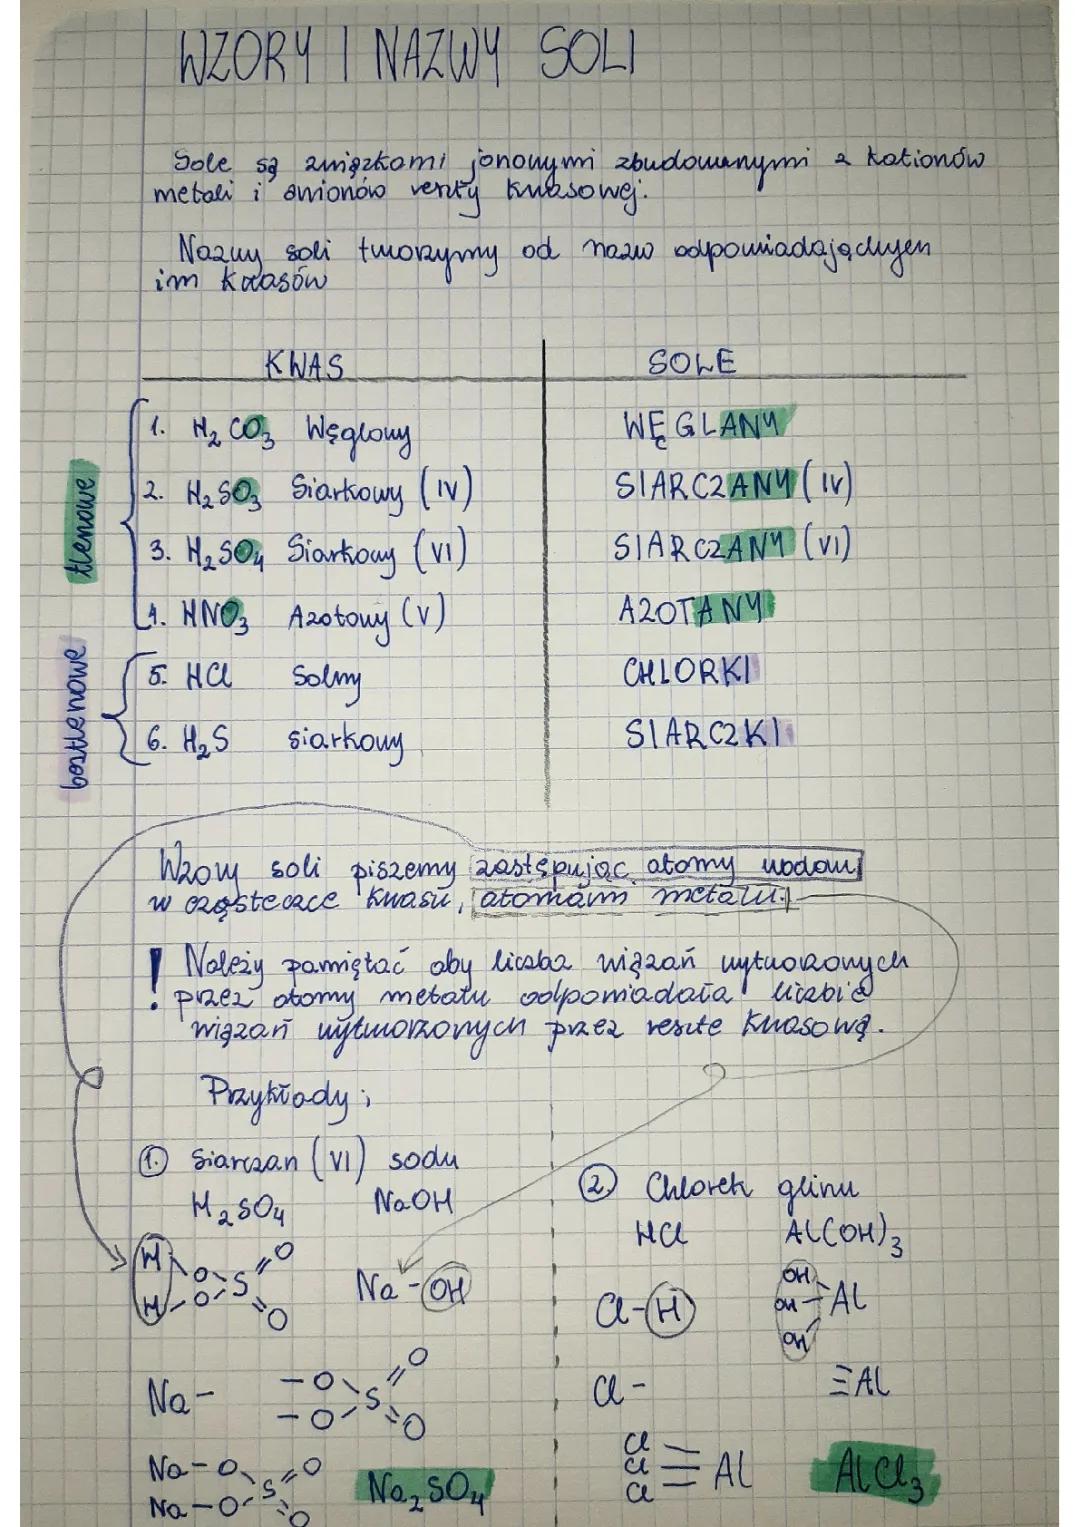 WZORY I NAZWY SOLI
Sole są związkami jonowymi zbudowanymi z kationów
metali i anionów reszty kwasowej.
Nazwy soli tworzymy od nazw odpowiadających
im kwasów
KWAS SOLE
tlenowe
1. H₂CO₃ Węglowy WĘGLANY
2. H₂SO₃ Siarkowy (IV) SIARCZANY (IV)
3. H₂SO₄ Siarkowy (VI) SIARCZANY (VI)
4. HNO₃ Azotowy (V) AZOTANY
beztlenowe
5. HCl Solny CHLORKI
6. H₂S siarkowy SIARCZKI
Wzory soli piszemy zastępując atomy wodoru
w cząsteczce kwasu, atomami metalu.
! Należy pamiętać aby liczba wiązań wytworzonych
przez atomy metalu odpowiadała liczbie
wiązań wytworzonych przez resztę kwasową.
Przykłady;
1. Siarczan (VI) sodu
H₂SO₄ NaOH
H-O
H-O S =O =O
Na-OH
Na-
-O
-O S =O =O
Na-O
Na-O S =O =O
Na₂SO₄
2. Chlorek glinu
HCl Al(OH)₃
Cl-H
OH
OH - Al
OH
Cl- ≡Al
Cl
Cl ≡ Al
Cl
AlCl₃